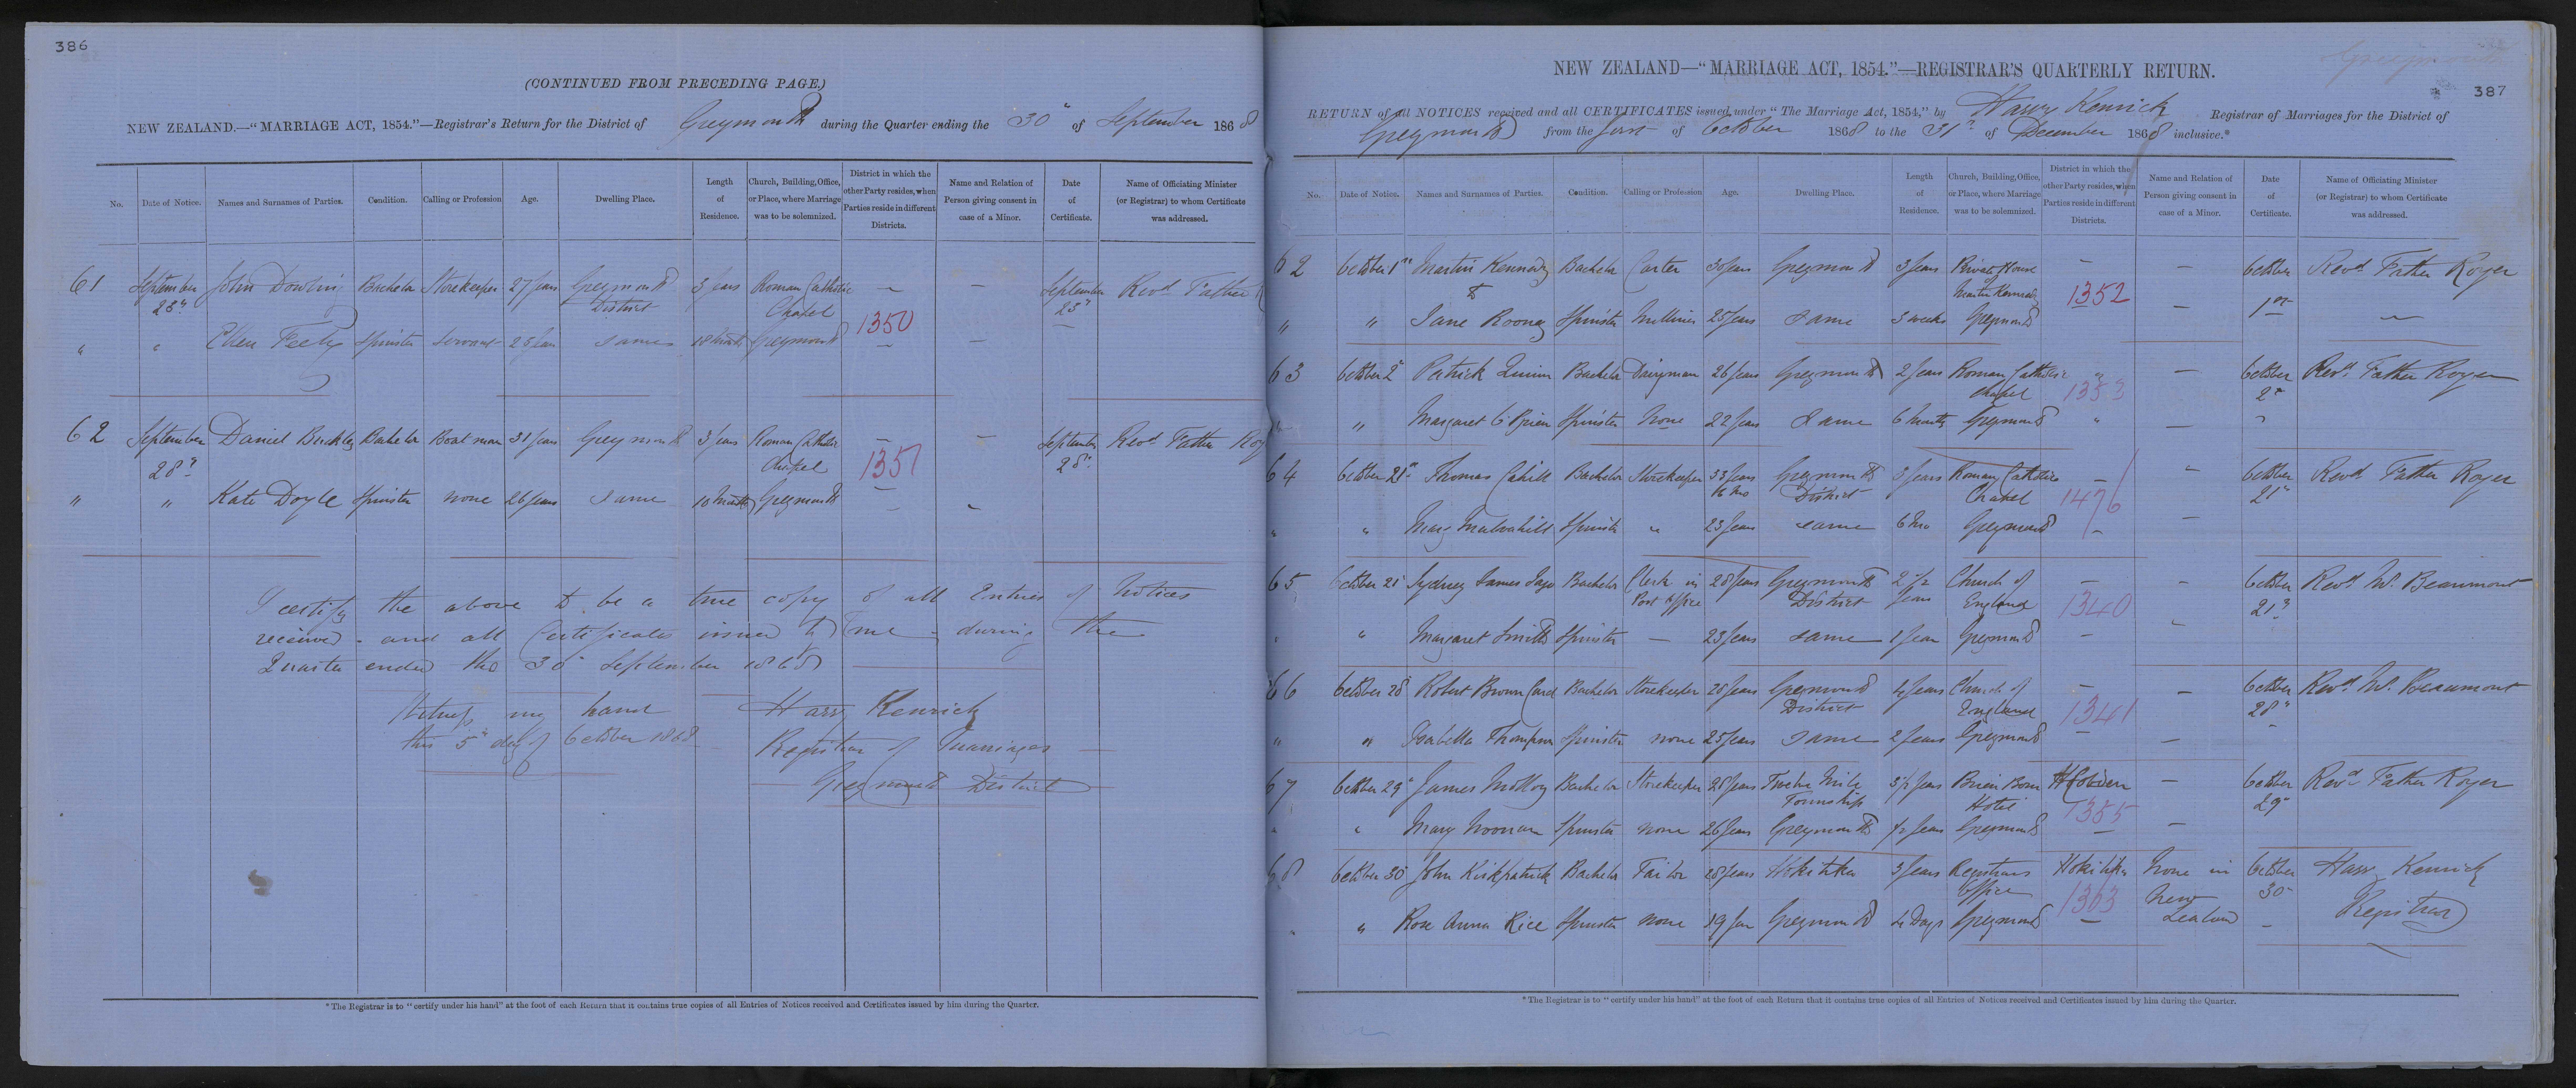 386
(CONTINUED FROM PRECEDING PAGE.)
NEW ZEALAND.—"MARRIAGE ACT, 1854."—Registrar's Return for the District of Greymouth during the Quarter ending the 30" of September 1868
No. Date of Notice. Names and Surnames of Parties. Condition. Calling or Profession Age. Dwelling Place. Length of Residence. Church, Building, Office, or Place, where Marriage was to be solemnized. District in which the other Party resides, when Parties reside in different Districts. Name and Relation of Person giving consent in case of a Minor. Date of Certificate. Name of Officiating Minister (or Registrar) to whom Certificate was addressed.
61 September John Dowling Bachelor Storekeeper 27 years Greymouth 3 years Roman Catholic — — September Revd Father
District Chapel 1350
" " Ellen Feely Spinster Servant same 18 months Greymouth — —
62 September Daniel Buckley Bachelor Boatman 31 years Greymouth 3 years Roman Catholic — — September Revd Father Roy
28" Chapel 1351 28"
" " Kate Doyle Spinster none 26 years same 10 months Greymouth — -
I certify the above to be a true copy of all Entries of Notices
received - and all Certificates issued by me - during the
Quarter ended the 30" September 1868
Witness my hand Harry Kenrick
this 5" day of October 1868 Registrar of Marriages
Greymouth District
*The Registrar is to "certify under his hand" at the foot of each Return that it contains true copies of all Entries of Notices received and Certificates issued by him during the Quarter.
Greymouth
387
NEW ZEALAND—"MARRIAGE ACT, 1854."—REGISTRAR'S QUARTERLY RETURN.
RETURN of all NOTICES received and all CERTIFICATES issued under "The Marriage Act, 1854," by Harry Kenrick Registrar of Marriages for the District of
Greymouth from the first of October 1868 to the 31" of December 1868 inclusive.*
No. Date of Notice. Names and Surnames of Parties. Condition. Calling or Profession Age. Dwelling Place. Length of Residence. Church, Building, Office, or Place, where Marriage was to be solemnized. District in which the other Party resides, when Parties reside in different Districts. Name and Relation of Person giving consent in case of a Minor. Date of Certificate. Name of Officiating Minister (or Registrar) to whom Certificate was addressed.
62 October 1st Martin Kennedy Bachelor Carter 30 years Greymouth 3 years Private House — — October Revd Father Royer
to Martin Kennedy 1352 1st
" " Jane Rooney Spinster Milliner 25 years same 3 weeks Greymouth —
63 October 2" Patrick Quinn Bachelor Dairyman 26 years Greymouth 2 years Roman Catholic " — October Revd Father Royer
Chapel 1353 2"
" " Margaret O'Brien Spinster None 22 years same 6 months Greymouth " — "
64 October 21st Thomas Cahill Bachelor Storekeeper 33 years Greymouth 3 years Roman Catholic — " October Revd Father Royer
6 mo District Chapel 1476 21"
" " Mary Mulvahill Spinster " 23 years same 6 Mo Greymouth - —
65 October 21" Sydney James Bachelor Clerk in 28 years Greymouth 2 1/2 Church of — — October Revd Wm Beaumont
Post Office District years England 1340 21"
" " Margaret Smith Spinster — 23 years same 1 year Greymouth — "
66 October 28" Robert Brown Card Bachelor Storekeeper 28 years Greymouth 4 years Church of — — October Revd Wm Beaumont
District England 1341 28"
" " Isabella Thompson Spinster none 25 years same 2 years Greymouth — —
67 October 29" James McIlroy Bachelor Storekeeper 28 years Twelve Mile 3 1/2 years Brien Boru — October Revd Father Royer
Township Hotel 1355 29"
" " Mary Noonan Spinster none 26 years Greymouth 1/2 year Greymouth — —
68 October 30" John Kirkpatrick Bachelor Tailor 28 years Hokitika 3 years Registrars Hokitika None in October Harry Kenrick
Office 1363 New 30" Registrar
" Rose Anna Rice Spinster none 19 years Greymouth 4 Days Greymouth — Zealand -
*The Registrar is to "certify under his hand" at the foot of each Return that it contains true copies of all Entries of Notices received and Certificates issued by him during the Quarter.